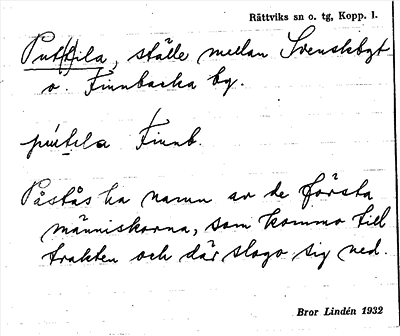 Rättviks sn o. tg, Kopp. l.
Puttila, ställe mellan Svenskbyt
o. Finnbacka by.
pùtila Finnb.
Påstås ha namn av de första
människorna, som kommo till
trakten och där slogo sig ned.
Bror Lindén 1932